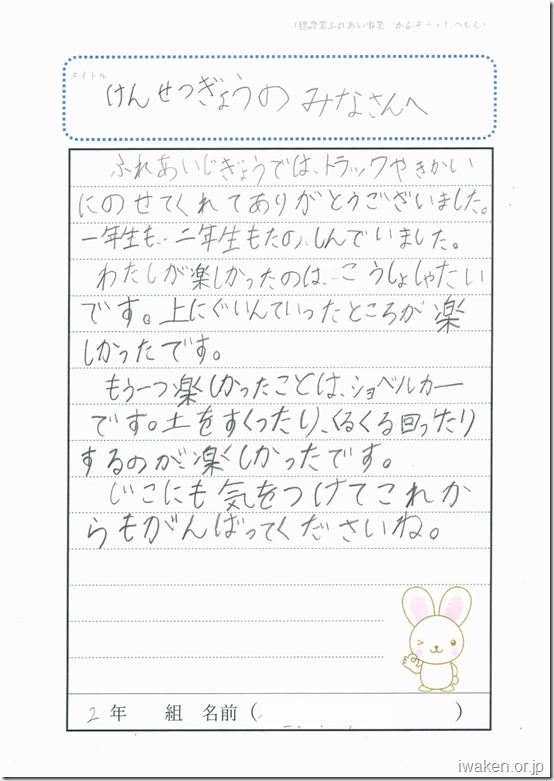 タイトル
けんせつぎょうの みなさんへ
ふれあいじぎょうでは、トラックやきかい
にのせてくれてありがとうございました。
一年生も、二年生もたのしんでいました。
わたしが楽しかったのは、こうしょしゃたい
です。上にぐいんていったところが楽
しかったです。
もう一つ楽しかったことは、ショベルカー
です。土をすくったり、くるくる回ったり
するのが楽しかったです。
じこにも気をつけてこれか
らもがんばってくださいね。
2年 組 名前( )
iwaken.or.jp